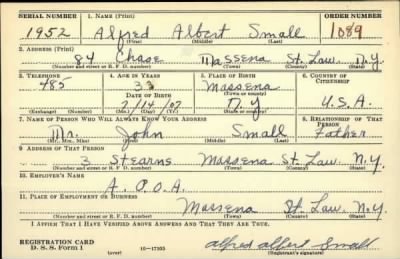 SERIAL NUMBER 1. NAME (Print) ORDER NUMBER
1952 Alfred Albert Small 1089
(First) (Middle) (Last)
2. ADDRESS (Print)
84 Chase Massena St. Law. N.Y.
(Number and street or R. F. D. number) (Town) (County) (State)
3. TELEPHONE 4. AGE IN YEARS 5. PLACE OF BIRTH 6. COUNTRY OF CITIZENSHIP
485 33 Massena
DATE OF BIRTH (Town or county)
2/14/07 N.Y U.S.A.
(Exchange) (Number) (Mo.) (Day) (Yr.) (State or country)
7. NAME OF PERSON WHO WILL ALWAYS KNOW YOUR ADDRESS 8. RELATIONSHIP OF THAT PERSON
Mr. John Small Father
(Mr., Mrs., Miss) (First) (Middle) (Last)
9. ADDRESS OF THAT PERSON
3 Stearns Massena St. Law. N.Y.
(Number and street or R. F. D. number) (Town) (County) (State)
10. EMPLOYER'S NAME
A. O. O. A.
11. PLACE OF EMPLOYMENT OR BUSINESS
Massena St. Law. N.Y.
(Number and street or R. F. D. number) (Town) (County) (State)
I AFFIRM THAT I HAVE VERIFIED ABOVE ANSWERS AND THAT THEY ARE TRUE.
REGISTRATION CARD
D. S. S. Form 1 (over) 16—17105
Alfred Albert Small
(Registrant's signature)